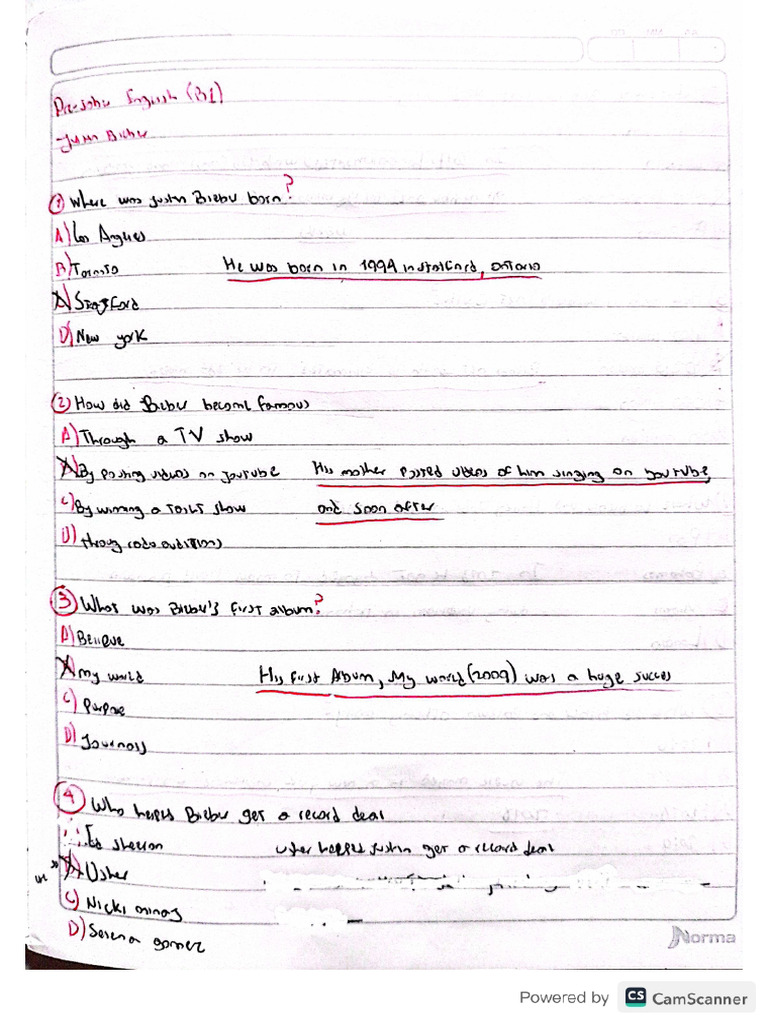 English (B1)
① Where was Justin Bieber born?
A) Los Angeles
B) Toronto He was born in 1994 in Stratford, Ontario
Stratford
D) New york
② How did Bieber become famous
A) Through a TV show
By posting videos on youtube His mother posted videos of him singing on youtube,
C) By winning a show and soon after
D) auditions
③ What was Bieber's first album?
A) Believe
my world His first Album, My world (2009) was a huge succes
C) Purpose
D) Journals
④ Who helped Bieber get a record deal
Ed sheeran helped Justin get a record deal
Usher
C) Nicki minaj
D) Selena gomez
Norma
Powered by CS CamScanner